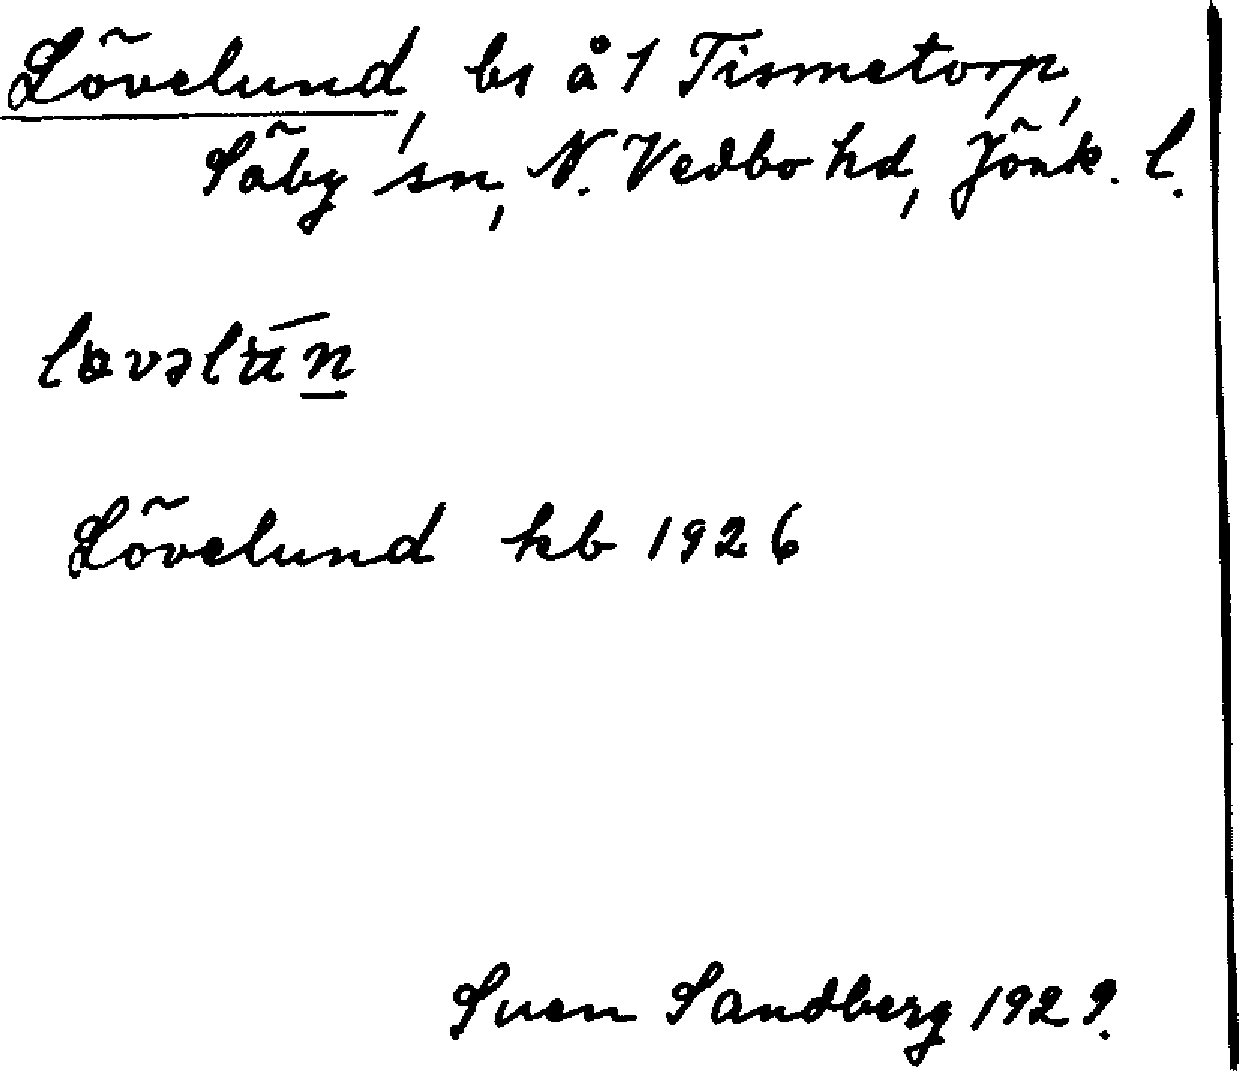 Lövelund, bs å 1 Tismetorp,
Säby sn, N. Vedbo hd, Jönk. l.
Lövelund kb 1926
Sven Sandberg 1929.